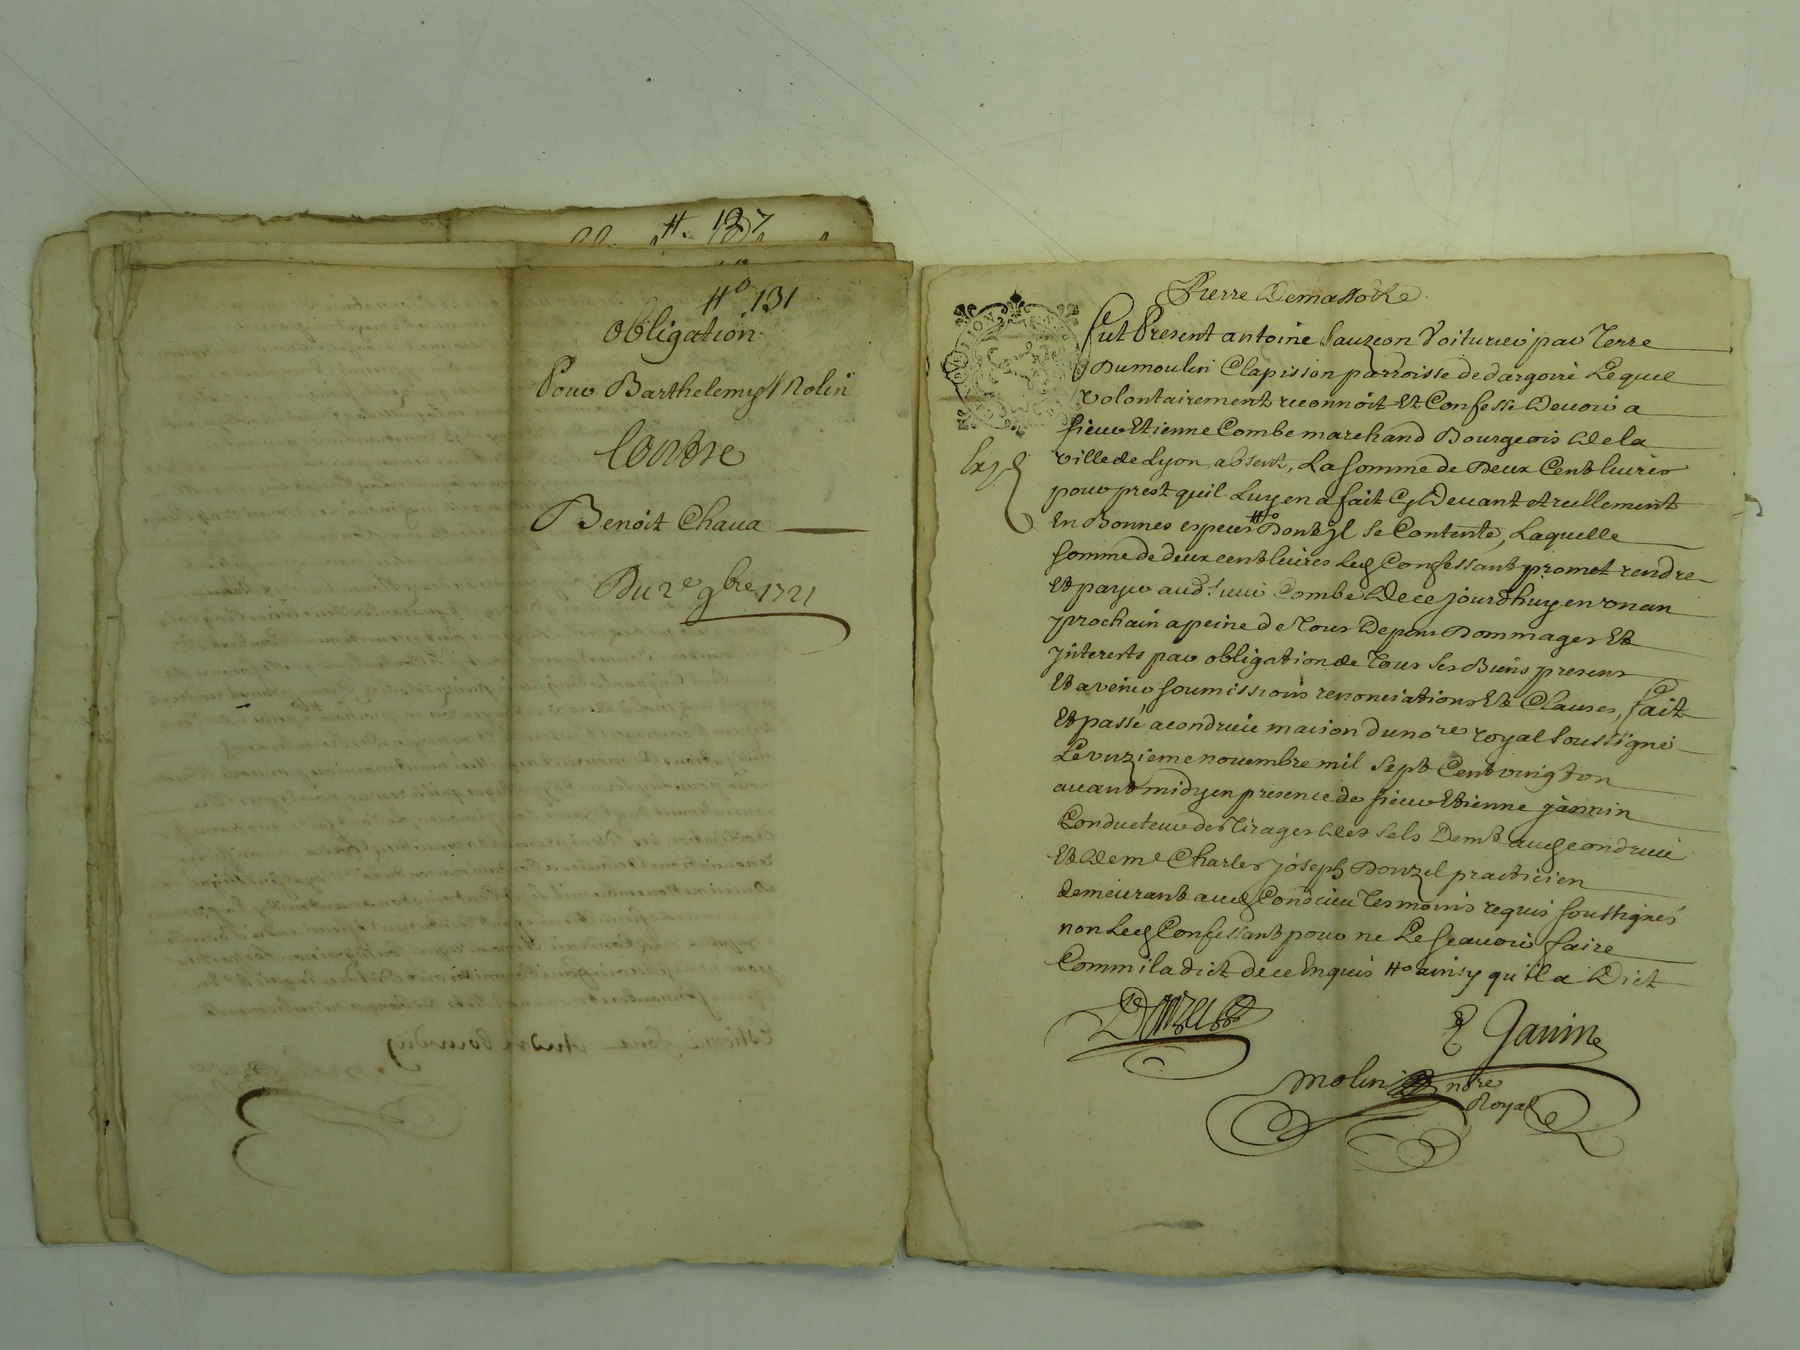 H. 127
Ho 131
obligation
Pour Barthelemy Molin
Contre
Benoit Chaua
Du 2e 9bre 1721
Pierre Demassotte
fut Present antoine Sauzeon Voiturier par Terre
Dumoulin Clapisson parroisse de dargoire Lequel
volontairement reconnoit Et Confesse Deuoir a
sieur Etienne Combe marchand Bourgeois de la
ville de Lyon, absent, La somme de Deux Cent liures
pour prest quil Luy en a fait Cy Deuant et reellement
En Bonnes especes Dont Jl se Contente, Laquelle
somme de deux cent liures Led Confessant promet rendre
Et payer aud. sieur Combe De ce jourdhuy en vn an
prochain a peine de Tous Depens Dommages Et
jnterests par obligation de Tous ses Biens presens
Et a venir soumissions renonciations Et Clauses, fait
Et passé a condrieu maison du nore royal soussigné
Le vnzieme nouembre mil sept Cent vingt on
auant midy en presence de sieur Etienne janin
Conducteur des Tirages des sels Demt aud condrieu
Et de me Charles joseph Donzel practicien
demeurant aud Condrieu Tesmoins requis soussignés
non Led Confessant pour ne Le scauoir faire
Comm il a dict de ce Enquis Ho ainsy qu'il a Dict
Donzel
E Janin
molin nore
Royal